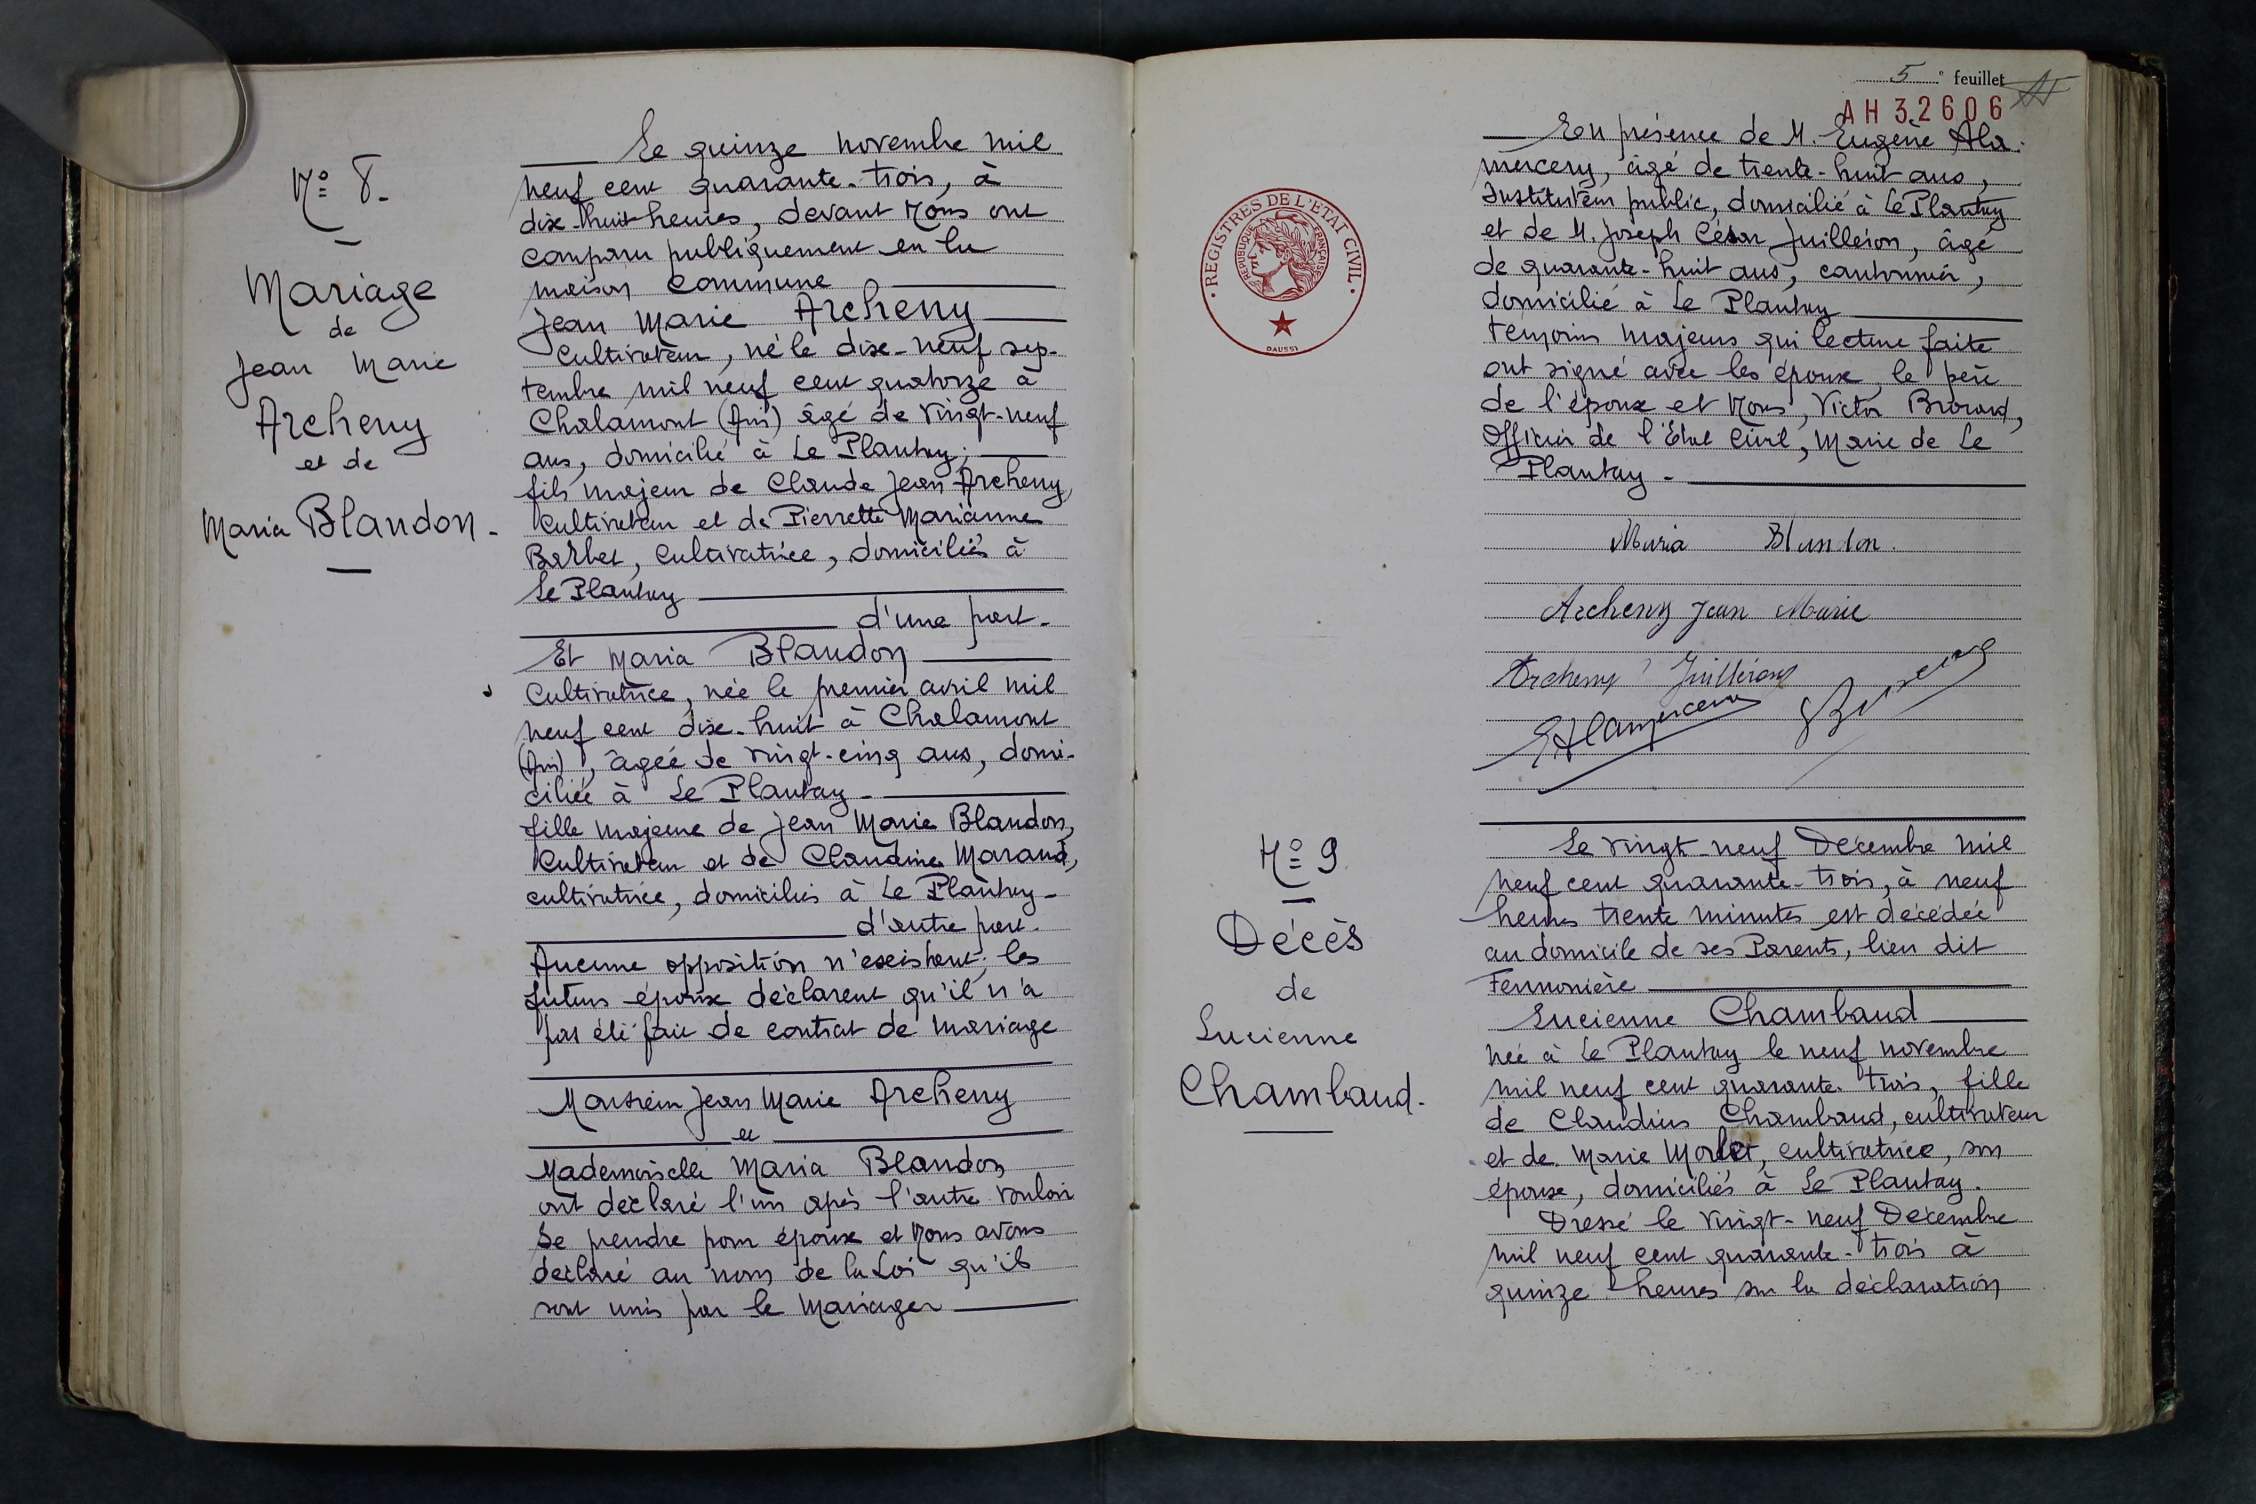 N° 8.
Mariage
de
Jean Marie
Archeny
et de
Maria Blandon.
Le quinze novembre mil
neuf cent quarante-trois, à
dix-huit heures, devant Nous ont
comparu publiquement en la
maison commune
Jean Marie Archeny
Cultivateur, né le dix-neuf sep-
tembre mil neuf cent quatorze à
Chalamont (Ain) âgé de vingt-neuf
ans, domicilié à Le Plantay;
fils majeur de Claude Jean Archeny,
Cultivateur et de Pierrette Marianne
Barbet, Cultivatrice, domiciliés à
Le Plantay
d'une part.
Et Maria Blandon
Cultivatrice, née le premier avril mil
neuf cent dix-huit à Chalamont
(Ain), âgée de vingt-cinq ans, domi-
ciliée à Le Plantay.
fille majeure de Jean Marie Blandon,
Cultivateur et de Claudine Marand,
cultivatrice, domiciliés à Le Plantay-
d'autre part.
Aucune opposition n'existant; les
futurs époux déclarent qu'il n'a
pas été fait de contrat de mariage
Monsieur Jean Marie Archeny
et
Mademoiselle Maria Blandon
ont déclaré l'un après l'autre vouloir
se prendre pour époux et Nous avons
déclaré au nom de la Loi qu'ils
sont unis par le Mariage
5e feuillet
AH 32606
REGISTRES DE L'ETAT CIVIL
REPUBLIQUE FRANÇAISE
DAUSSI
En présence de M. Eugène Ala-
mercery, âgé de trente-huit ans,
Instituteur public, domicilié à Le Plantay
et de M. Joseph César Juilléron, âgé
de quarante-huit ans, cantonnier,
domicilié à Le Plantay
témoins majeurs qui lecture faite
ont signé avec les époux, le père
de l'époux et Nous, Victor
Officier de l'Etat Civil, Maire de Le
Plantay.
Maria Blandon.
Archeny Jean Marie
Archeny Juilléron
EAlamercery
N° 9
Décès
de
Lucienne
Chambaud.
Le vingt-neuf Décembre mil
neuf cent quarante-trois, à neuf
heures trente minutes est décédée
au domicile de ses Parents, lieu dit
Lucienne Chambaud
née à Le Plantay le neuf novembre
mil neuf cent quarante-trois, fille
de Claudius Chambaud, cultivateur
et de Marie Morlet, cultivatrice, son
épouse, domiciliés à Le Plantay.
Dressé le vingt-neuf Décembre
mil neuf cent quarante-trois à
quinze heures sur la déclaration